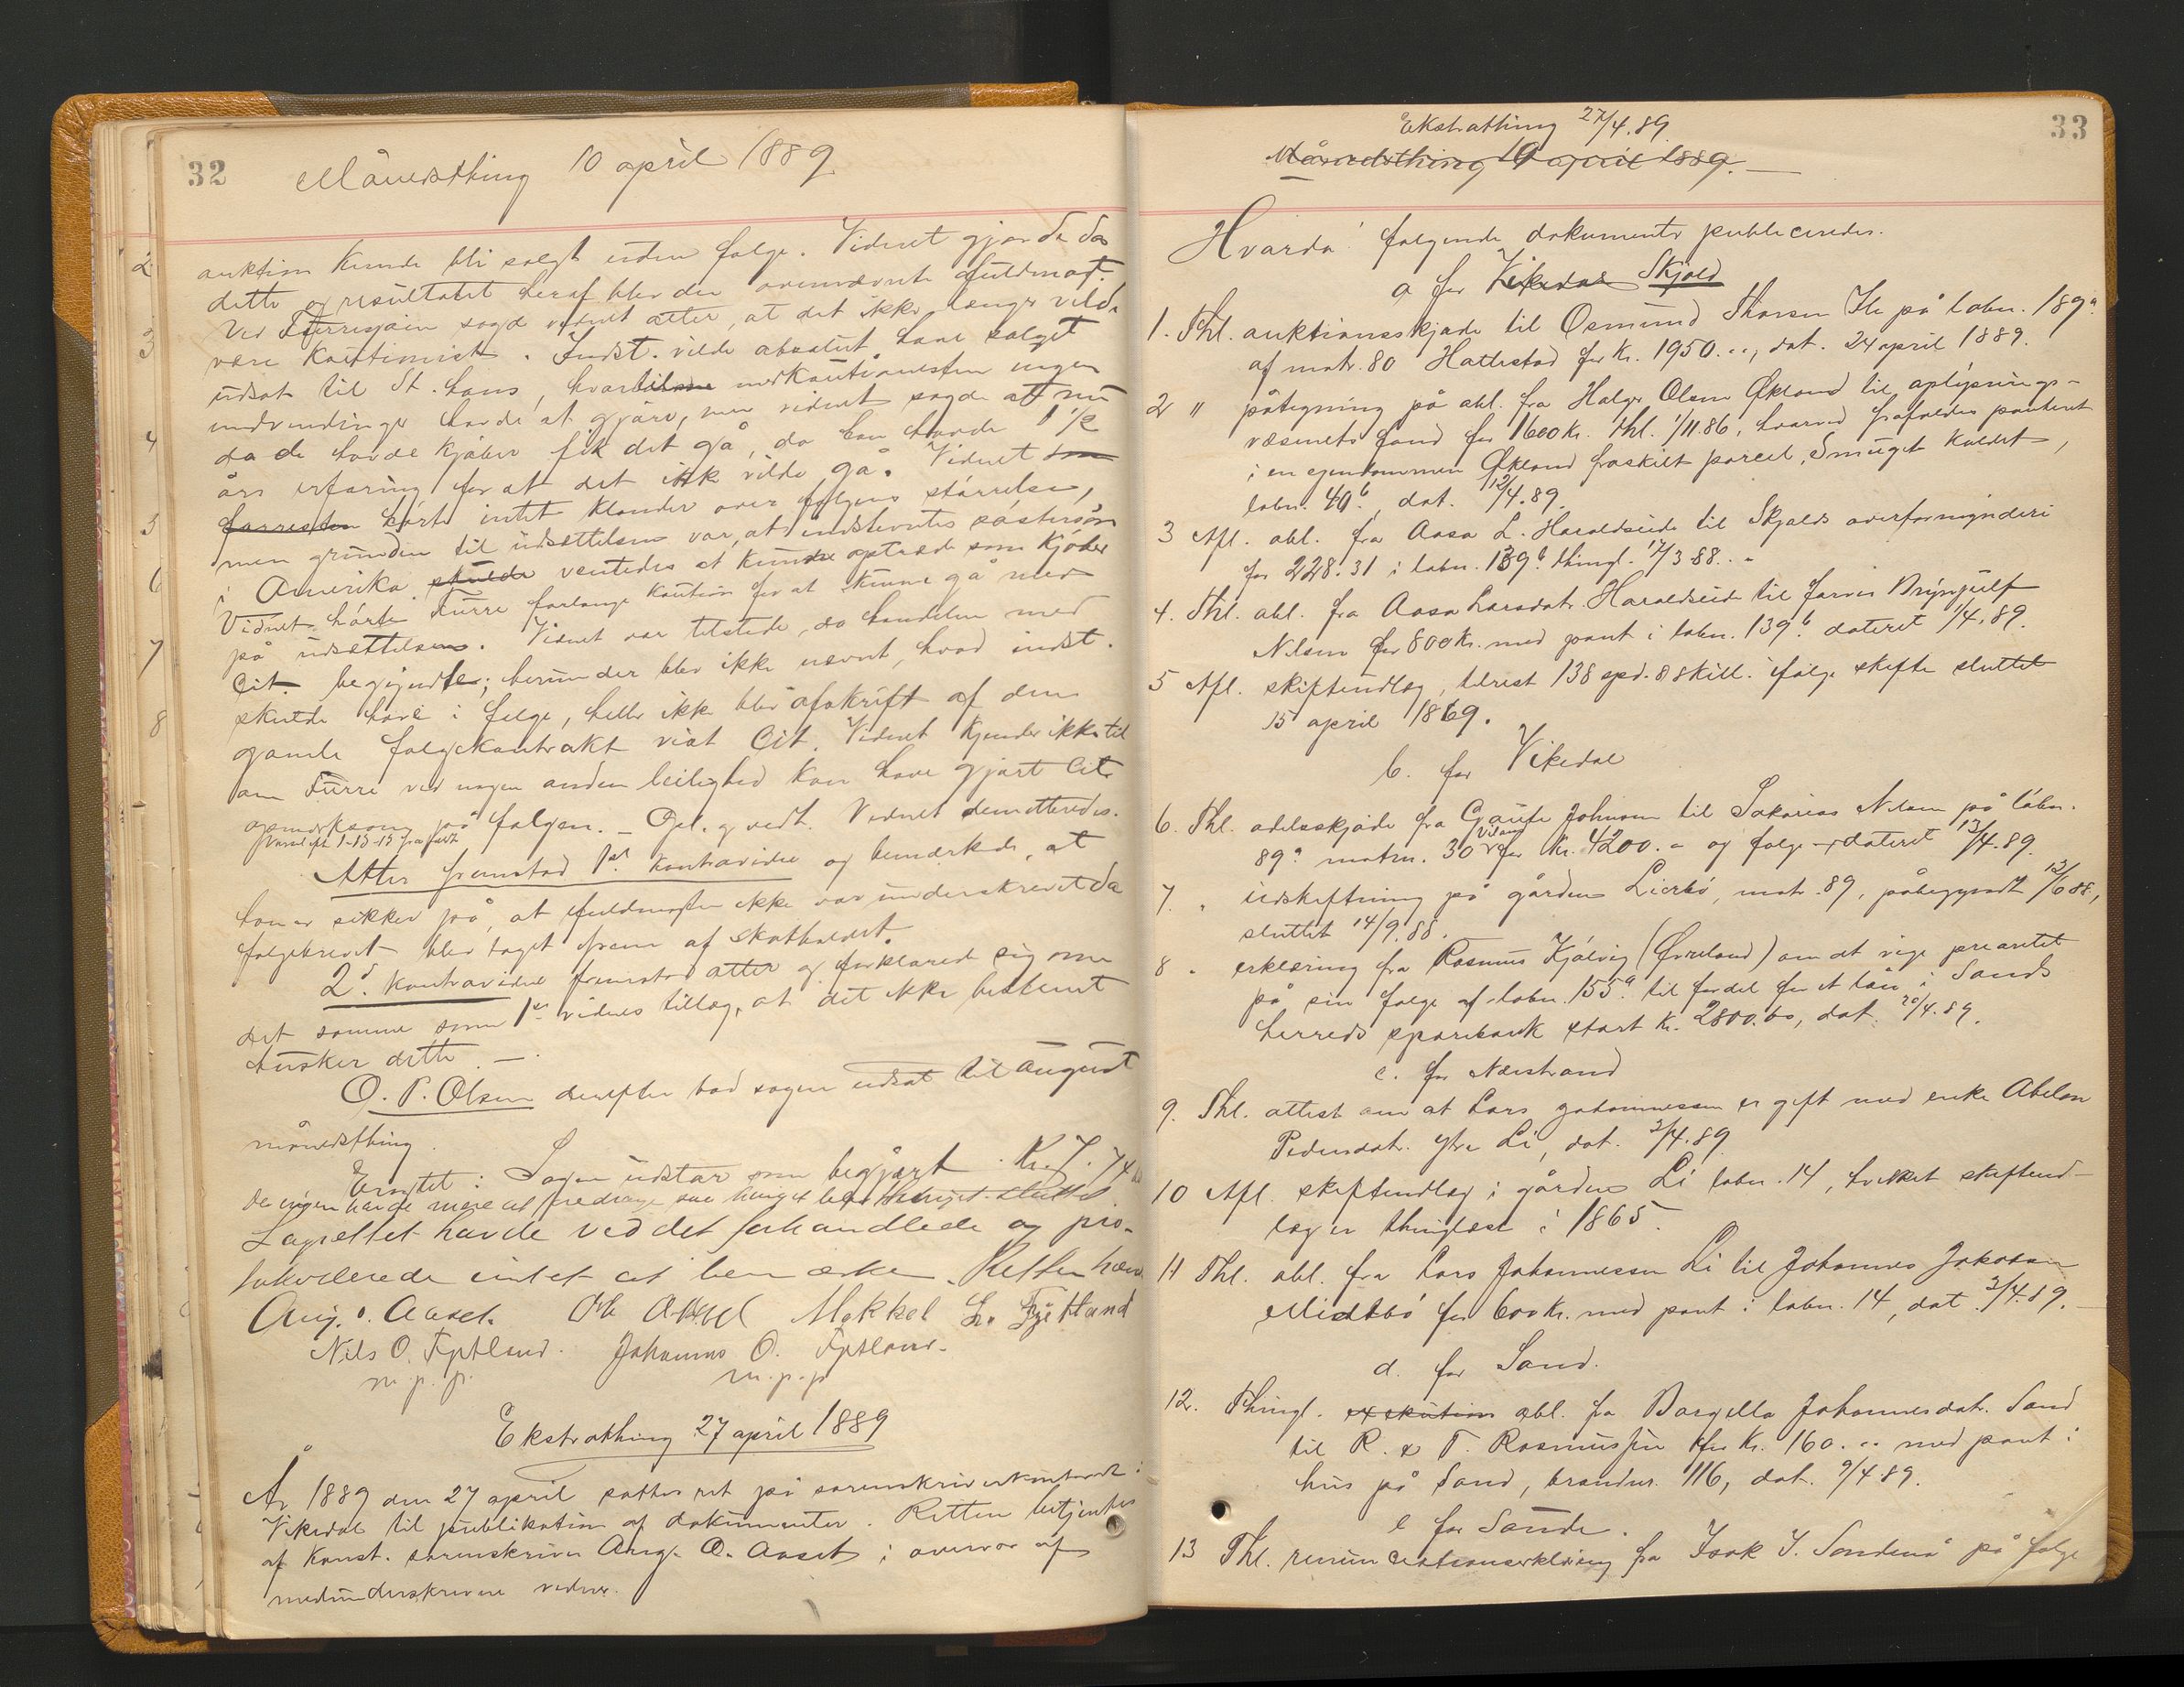 32
Månedsthing 10 april 1889
auktion kunde bli solgt uden følge. Vidnet gjorde da
dette og resultatet heraf blev den ovennævnte fuldmagt.
Ved Furresjøen sagde vidnet atter, at det ikke længer vilde
være kautionist. Indst. vilde absolut have salget
udsat til St. hans, hvortil medkautionisten ingen
indvendinger havde at gjøre, men vidnet sagde at nu
da de havde kjøber fik det gå, da han havde 1 1/2
års erfaring for at det ikke vilde gå. Vidnet
hørte intet klander over følgens størrelse,
men grunden til udsættelsen var, at indstevntes søstersøn
i Amerika skulde ventedes at kunde optræde som kjøber
Vidnet hørte Furre forlange kaution for at kunne gå med
på udsættelsen. Vidnet var tilstede, da handelen med
Cit. begyndte; herunder blev ikke nævnt, hvad indst.
skulde have i følge, heller ikke blev afskrift af den
gamle følgekontrakt vist Cit. Vidnet kjender ikke til
om Furre ved nogen anden leilighed kan have gjort Cit.
opmærksom på følgen. – Opl. g vedt. Vidnet demitteredes.
Atter fremstod 1st kontravidne og bemærkede, at
han er sikker på, at fuldmagten ikke var underskrevet da
følgebrevet blev taget frem af skatholdet.
2d. kontravidne fremstod atter og forklarede sig om
det samme som 1st vidnes tillæg, at det ikke bestemt
husker dette. –
O. P. Olsen derefter bad sagen udsat til august
månedsthing.
Eragtet: Sagen udstår som begjært.
Da ingen havde mere at fredrage
Lagrettet havde ved det forhandlede og pro-
tokollerede intet at bemærke. Retten hævet
Aug. O. Aaset. Mikkel L. Fjetland
Nils O. Fjetland. Johannes O. Fjetland.
m. p. p. m. p. p
Ekstrathing 27 april 1889
År 1889 den 27 april sattes ret på sorenskriverkontoret i
Vikedal til publikation af dokumenter. Retten betjentes
af konst. sorenskriver Aug. O. Aaset i overvær af
medunderskrevne vidner.
33
Ekstrathing 27/4.89
Månedsthing 10 april 1889.
Hvorda følgende dokumenter publiceredes.
a for Vikedal Skjold
1. Thl. auktionsskjøde til Osmund Thorsen på løbn. 189a
af matr. 80 Hattestad for kr. 1950.00, dat. 24 april 1889.
2 " påtegning på obl. fra Helge Olsen Økland til oplysnings-
væsenets fond for 1600 kr. thl. 1/11.86, hvorved frafaldes panteret
i en eiendommen Økland fraskilt parcel, Smuget kaldet,
løbn. 40b, dat. 12/4.89.
3 Afl. obl. fra Aasa L. Haraldseide til Skjolds overformynderi
for 228.31 i løbn. 139b thingl. 17/3 88..
4. Thl. obl. fra Aasa Larsdatr. Haraldseide til farver Brynjulf
Nilsen for 800 kr. med pant i løbn. 139b dateret 1/4.89.
5 Afl. skifteudlæg, tilrest 138 spd. 8 skill. ifølge skifte sluttet
15 april 1869.
b. for Vikedal
6. Thl. odelsskjøde fra Gaute Johnsen til Sakarias Nilsen på løbn.
89a matrn. 30 for kr. 4200.– og følge – dateret 13/4.89.
7. " udskiftning på gården Lierbø, matr. 89, påbegyndt 12/6 88,
sluttet 14/9.88.
8 " erklæring fra Rasmus Kjølvig (Øvreland) om at vige prioritet
på sin følge af løbn. 155a til fordel for et lån i Sands
herreds sparebank stort kr. 2800.00, dat. 20/4.89.
c. for Nærstrand
9. Thl. attest om at Lars Johannessen er gift med enke Abelon
Pedersdatr. ytre Li, dat. 3/4.89
10 Afl. skifteudlæg i gården Li løbn. 14, hvilket skifteud-
læg er thinglæst i 1865.
11 Thl. obl. fra Lars Johannessen Li til Johannes Jakobsen
Midtbø for 600 kr. med pant i løbn. 14, dat. 3/4.89.
d. for Sand.
12. Thingl. exekution obl. fra Borgilla Johannesdatr. Sand
til R. & T. Rasmussen for kr. 160.00 med pant i
hus på Sand, brandnr. 116, dat. 9/4 89.
e for Saude.
13 Thl. renunciationserklæring fra Isak I. Sandenå på følge
2
3
4
5
6
7
8